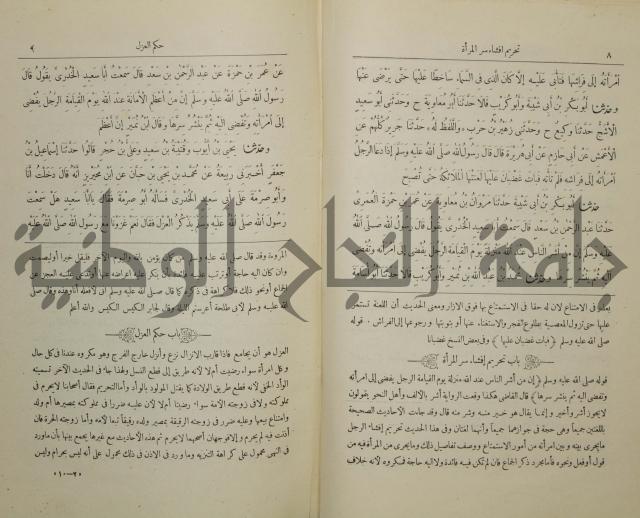 ٨
تحريم افشاء سر المرأة
امرأته إلى فراشها فتأبى عليه إلا كان الذي في السماء ساخطا عليها حتى يرضى عنها
حدثنا أبو بكر بن أبي شيبة وأبو كريب قالا حدثنا أبو معاوية ح وحدثني أبو سعيد
الأشج حدثنا وكيع ح وحدثني زهير بن حرب «واللفظ له» حدثنا جرير كلهم عن
الأعمش عن أبي حازم عن أبي هريرة قال قال رسول الله صلى الله عليه وسلم إذا دعا الرجل
امرأته إلى فراشه فلم تأته فبات غضبان عليها لعنتها الملائكة حتى تصبح
حدثنا أبو بكر بن أبي شيبة حدثنا مروان بن معاوية عن عمر بن حمزة العمري
حدثنا عبد الرحمن بن سعد قال سمعت أبا سعيد الخدري يقول قال رسول الله صلى الله
عليه وسلم إن من أشر الناس عند الله منزلة يوم القيامة الرجل يفضي إلى امرأته وتفضي
إليه ثم ينشر سرها وحدثنا محمد بن عبد الله بن نمير وأبو كريب قالا حدثنا أبو أسامة
بعذر في الامتناع لان له حقا في الاستمتاع بها فوق الازار ومعنى الحديث أن اللعنة تستمر
عليها حتى تزول المعصية بطلوع الفجر والاستغناء عنها أو بتوبتها ورجوعها إلى الفراش. قوله
صلى الله عليه وسلم ﴿فبات غضبان عليها﴾ وفي بعض النسخ غضبانا
باب تحريم إفشاء سر المرأة
قوله صلى الله عليه وسلم ﴿إن من أشر الناس عند الله منزلة يوم القيامة الرجل يفضي إلى امرأته
وتفضي اليه ثم ينشر سرها﴾ قال القاضي هكذا وقعت الرواية أشر بالالف وأهل النحو يقولون
لا يجوز أشر وأخير وإنما يقال هو خير منه وشر منه قال وقد جاءت الأحاديث الصحيحة
باللغتين جميعا وهي حجة في جوازهما جميعا وأنهما لغتان وفي هذا الحديث تحريم إفشاء الرجل
ما يجري بينه وبين امرأته من أمور الاستمتاع ووصف تفاصيل ذلك وما يجري من المرأة فيه من
قول أو فعل ونحوه فأما مجرد ذكر الجماع فان لم تكن فيه فائدة ولا اليه حاجة فمكروه لانه خلاف
حكم العزل
٩
عن عمر بن حمزة عن عبد الرحمن بن سعد قال سمعت أبا سعيد الخدري يقول قال
رسول الله صلى الله عليه وسلم إن من أعظم الأمانة عند الله يوم القيامة الرجل يفضي
إلى امرأته وتفضي إليه ثم ينشر سرها وقال ابن نمير إن أعظم
وحدثنا يحيى بن أيوب وقتيبة بن سعيد وعلي بن حجر قالوا حدثنا إسماعيل بن
جعفر أخبرني ربيعة عن محمد بن يحيى بن حبان عن ابن محيريز أنه قال دخلت أنا
وأبو صرمة على أبي سعيد الخدري فسأله أبو صرمة فقال يا أبا سعيد هل سمعت
رسول الله صلى الله عليه وسلم يذكر العزل فقال نعم غزونا مع رسول الله صلى الله عليه
المروءة وقد قال صلى الله عليه وسلم من كان يؤمن بالله واليوم الآخر فليقل خيرا أو ليصمت
وان كان اليه حاجة أو ترتب عليه فائدة بأن ينكر عليه اعراضه عنها أو تدعي عليه العجز عن
الجماع أو نحو ذلك فلا كراهة في ذكره كما قال صلى الله عليه وسلم اني لافعله أنا وهذه وقال صلى
الله عليه وسلم لأبي طلحة أعرستم الليلة وقال لجابر الكيس الكيس والله أعلم
باب حكم العزل
العزل هو أن يجامع فاذا قارب الانزال نزع وأنزل خارج الفرج وهو مكروه عندنا في كل حال
وكل امرأة سواء رضيت أم لا لانه طريق إلى قطع النسل ولهذا جاء في الحديث الآخر تسميته
الوأد الخفي لانه قطع طريق الولادة كما يقتل المولود بالوأد وأما التحريم فقال أصحابنا لا يحرم في
مملوكته ولا في زوجته الأمة سواء رضيتا أم لا لان عليه ضررا في مملوكته بمصيرها أم ولد
وامتناع بيعها وعليه ضرر في زوجته الرقيقة بمصير ولده رقيقا تبعا لأمه وأما زوجته الحرة فان
أذنت فيه لم يحرم والا فوجهان أصحهما لا يحرم ثم هذه الأحاديث مع غيرها يجمع بينها بأن ما ورد
في النهي محمول على كراهة التنزيه وما ورد في الاذن في ذلك محمول على أنه ليس بحرام وليس
«٢ - ١٠»
جامعة النجاح الوطنية